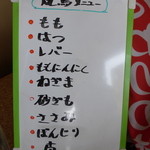 焼鳥メニュー
もも
はつ
レバー
ももにんにく
ねぎま
砂ぎも
ささみ
ぼんじり
皮